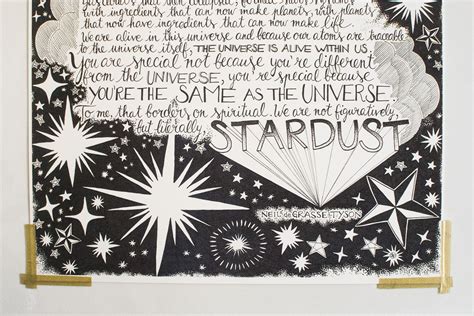 with ingredients that can now make planets, with planets
that now have ingredients that can now make life.
We are alive in this universe and because our atoms are traceable
to the universe itself, THE UNIVERSE IS ALIVE WITHIN US.
You are special not because you're different
from the UNIVERSE, you're special because
YOU'RE THE SAME AS THE UNIVERSE.
To me, that borders on spiritual. We are not figuratively,
but literally,
STARDUST
NEIL de GRASSE TYSON